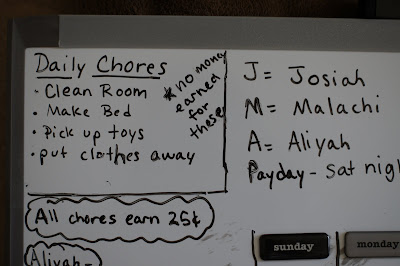 Daily Chores
· Clean Room
· Make Bed
· Pick up toys
· put clothes away
* no money
earned
for
these
J = Josiah
M = Malachi
A = Aliyah
Payday - sat nig
All chores earn 25¢
Aliyah -
sunday
monday